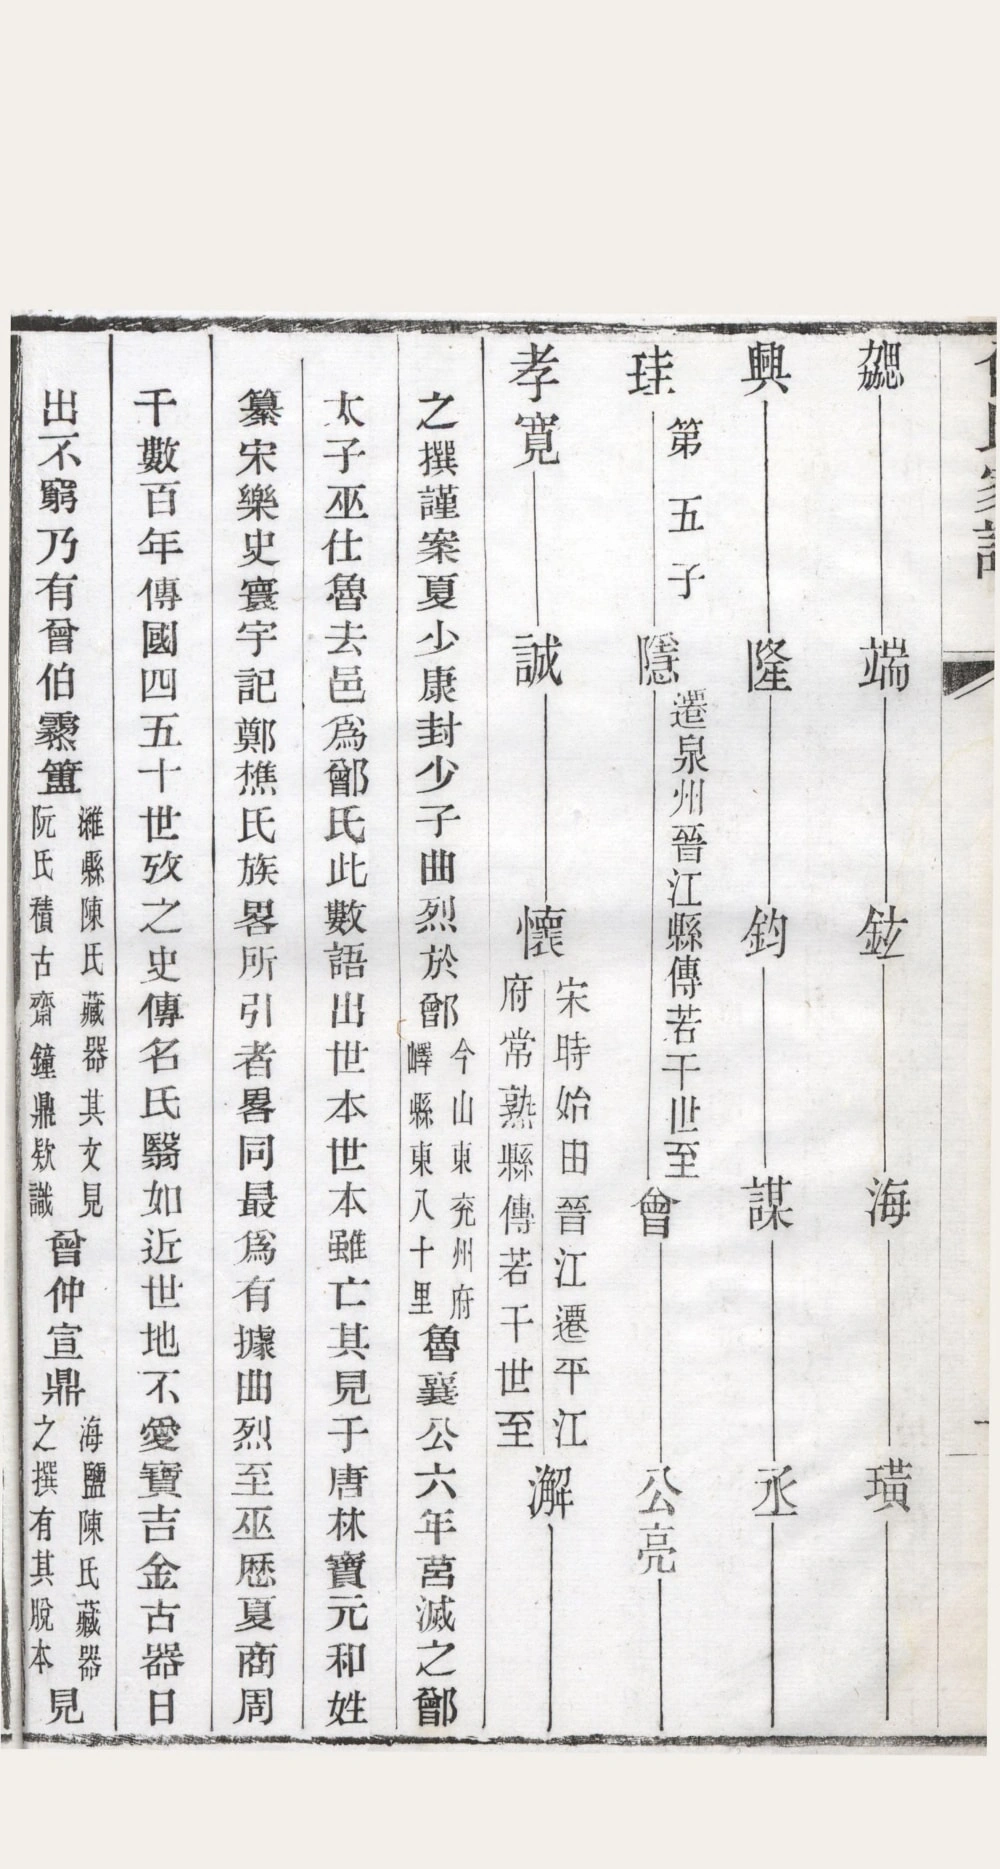 勰 端 鉉 海 璜
興 隆 鈞 謀 丞
珪 第五子 隱 遷泉州晉江縣傳若干世至 會 公亮
孝寬 誠 懷 宋時始由晉江遷平江
府常熟縣傳若干世至 澥
之撰謹案夏少康封少子曲烈於鄫 今山東兗州府
嶧縣東八十里 魯襄公六年莒滅之鄫
太子巫仕魯去邑爲鄫氏此數語出世本世本雖亡其見于唐林寶元和姓
纂宋樂史寰宇記鄭樵氏族畧所引者畧同最爲有據曲烈至巫歷夏商周
千數百年傳國四五十世攷之史傳名氏翳如近世地不愛寶吉金古器日
出不窮乃有曾伯霥簠 濰縣陳氏藏器其文見
阮氏積古齋鐘鼎欵識 曾仲宣鼎 海鹽陳氏藏器
之撰有其脫本 見